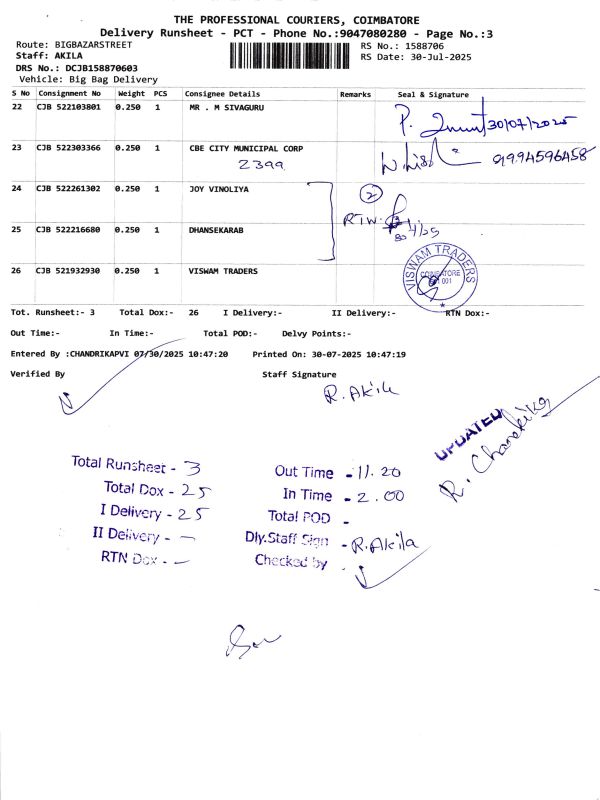 THE PROFESSIONAL COURIERS, COIMBATORE
Delivery Runsheet - PCT - Phone No.:9047080280 - Page No.:3
Route: BIGBAZARSTREET RS No.: 1588706
Staff: AKILA RS Date: 30-Jul-2025
DRS No.: DCJB158870603
Vehicle: Big Bag Delivery
S No Consignment No Weight PCS Consignee Details Remarks Seal & Signature
22 CJB 522103801 0.250 1 MR . M SIVAGURU 30/07/2025
23 CJB 522303366 0.250 1 CBE CITY MUNICIPAL CORP 9994596458
2399
24 CJB 522261302 0.250 1 JOY VINOLIYA 2
25 CJB 522216680 0.250 1 DHANSEKARAB
26 CJB 521932930 0.250 1 VISWAM TRADERS
VISWAM TRADERS
COIMBATORE
Tot. Runsheet:- 3 Total Dox:- 26 I Delivery:- II Delivery:- RTN Dox:-
Out Time:- In Time:- Total POD:- Delvy Points:-
Entered By :CHANDRIKAPVI 07/30/2025 10:47:20 Printed On: 30-07-2025 10:47:19
Verified By Staff Signature
R. Akila
UPDATED
R. Chandrika
Total Runsheet - 3 Out Time - 11.20
Total Dox - 25 In Time - 2.00
I Delivery - 25 Total POD -
II Delivery - — Dly.Staff Sign - R.Akila
RTN Dox - — Checked by -